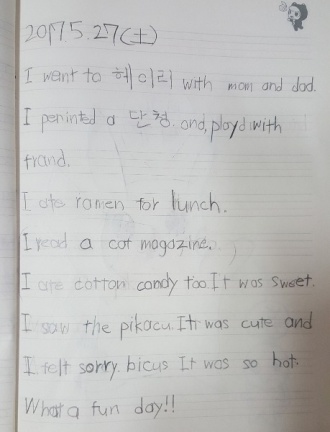 2017.5.27(土)
I want to 헤이리 with mom and dad.
I peninted a 단청. and, ployd with
frand.
I ate ramen for lunch.
I read a cat magazine.
I ate cotton candy too It was sweet.
I saw the pikacu. It was cute and
I felt sorry. bicus It was so hot.
What a fun day!!